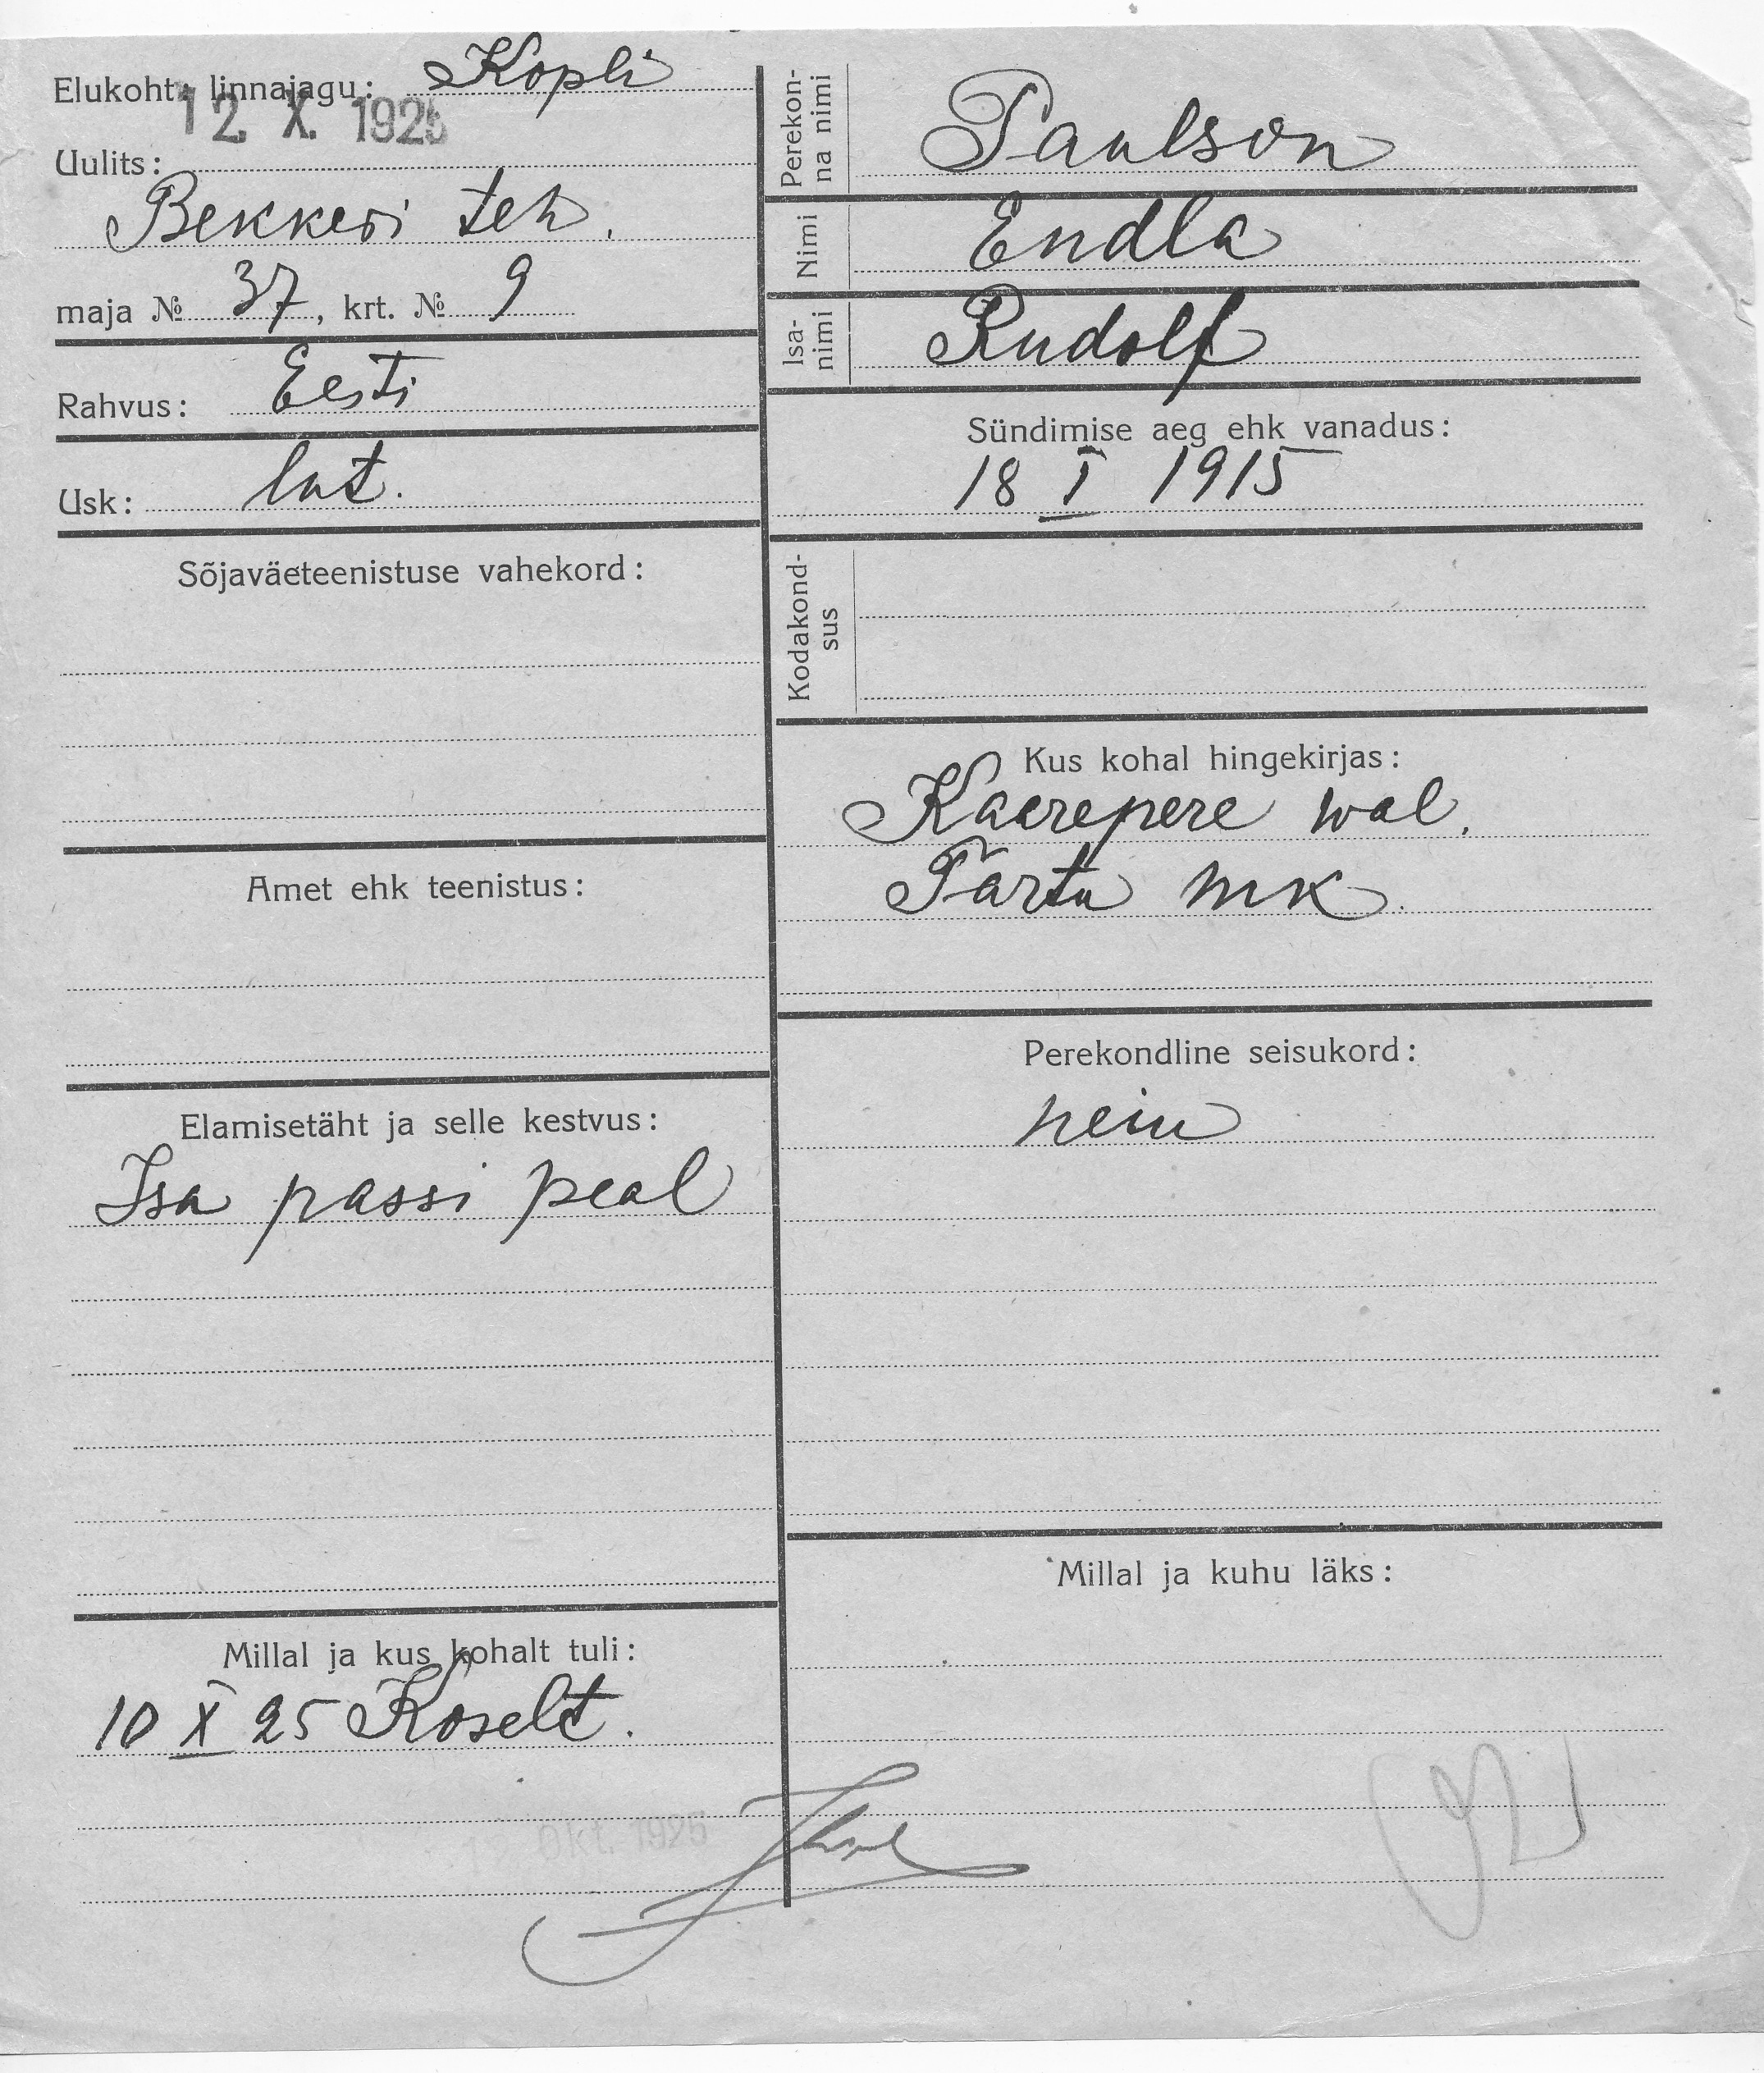 Elukoht, linnajagu: Kopli
12. X. 1925
Uulits:
Bekkeri teh.
maja № 37, krt. № 9
Rahvus: Eesti
Usk: lut.
Sõjaväeteenistuse vahekord:
Amet ehk teenistus:
Elamisetäht ja selle kestvus:
Isa passi peal
Millal ja kus kohalt tuli:
10 X 25 Koselt.
Okt. 1925
Perekon-
na nimi
Paulson
Nimi
Endla
Isa-
nimi
Rudolf
Sündimise aeg ehk vanadus:
18 I 1915
Kodakond-
sus
Kus kohal hingekirjas:
Kaarepere wal.
Tartu mk.
Perekondline seisukord:
neiu
Millal ja kuhu läks: